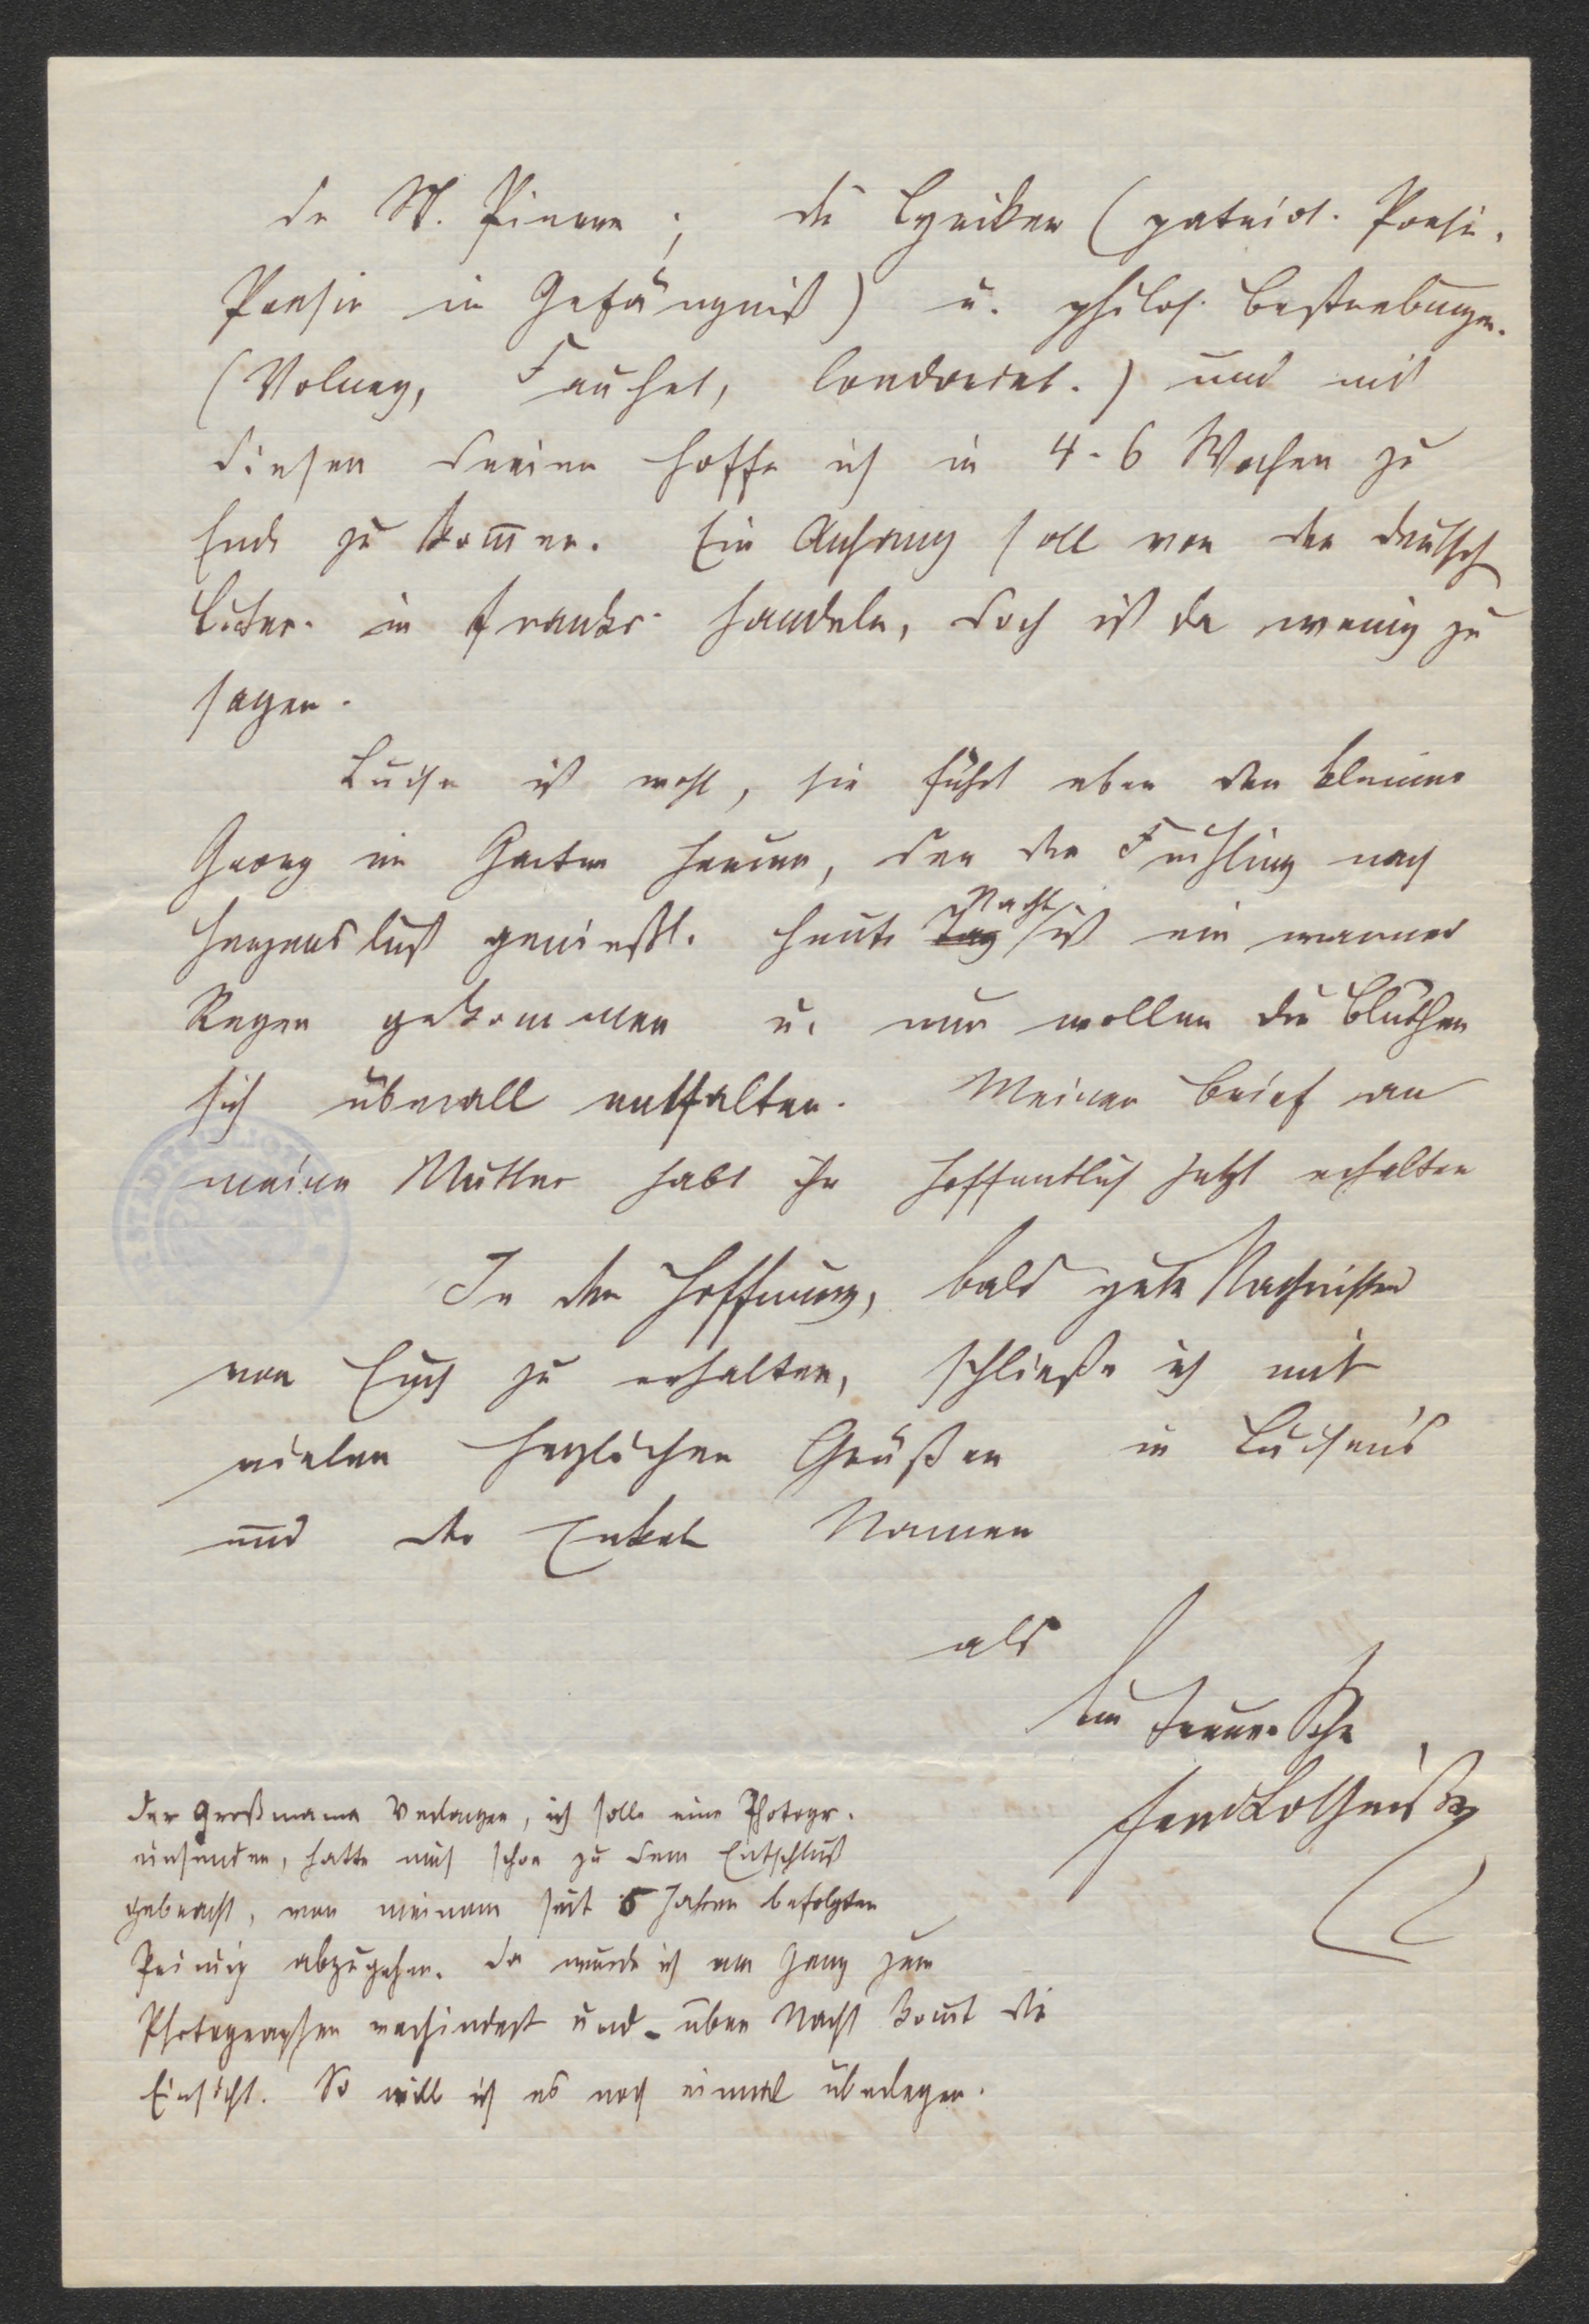 de St. Pierre; die Lyriker (patriot. Poesie,
Poesie im Gefängniß) u. philos. Bestrebungen.
(Volney, Fauchet, Condorcet.) und mit
diesen dreien hoffe ich in 4-6 Wochen zu
Ende zu kom̅en. Ein Anhang soll von der deutsch
Liter. in Frankr. handeln, doch ist da wenig zu
sagen.
Luise ist wohl, sie führt eben den kleinen
Georg im Garten herum, der den Frühling nach
Herzenslust genießt. Heute Tag Nacht ist ein warmer
Regen gekommen u. nun wollen die Blüthen
sich überall entfalten. Meinen Brief an
meine Mutter habt ihr hoffentlich jetzt erhalten
In der Hoffnung, bald gute Nachrichten
von Euch zu erhalten, schließe ich mit
vielen herzlichen Grüßen in Luisens
und der Enkel Namen
als
Euer treuer Sohn
Ferd Lotheißen
Der Großmama Verlangen, ich solle eine Photogr.
einsenden, hatte mich schon zu dem Entschluß
gebracht, von meinem seit 5 Jahren befolgten
Prinzip abzugehen. Da wurde ich am Gang zum
Photographen verhindert und - über Nacht kom̅t die
Einsicht. So will ich es noch einmal überlegen.